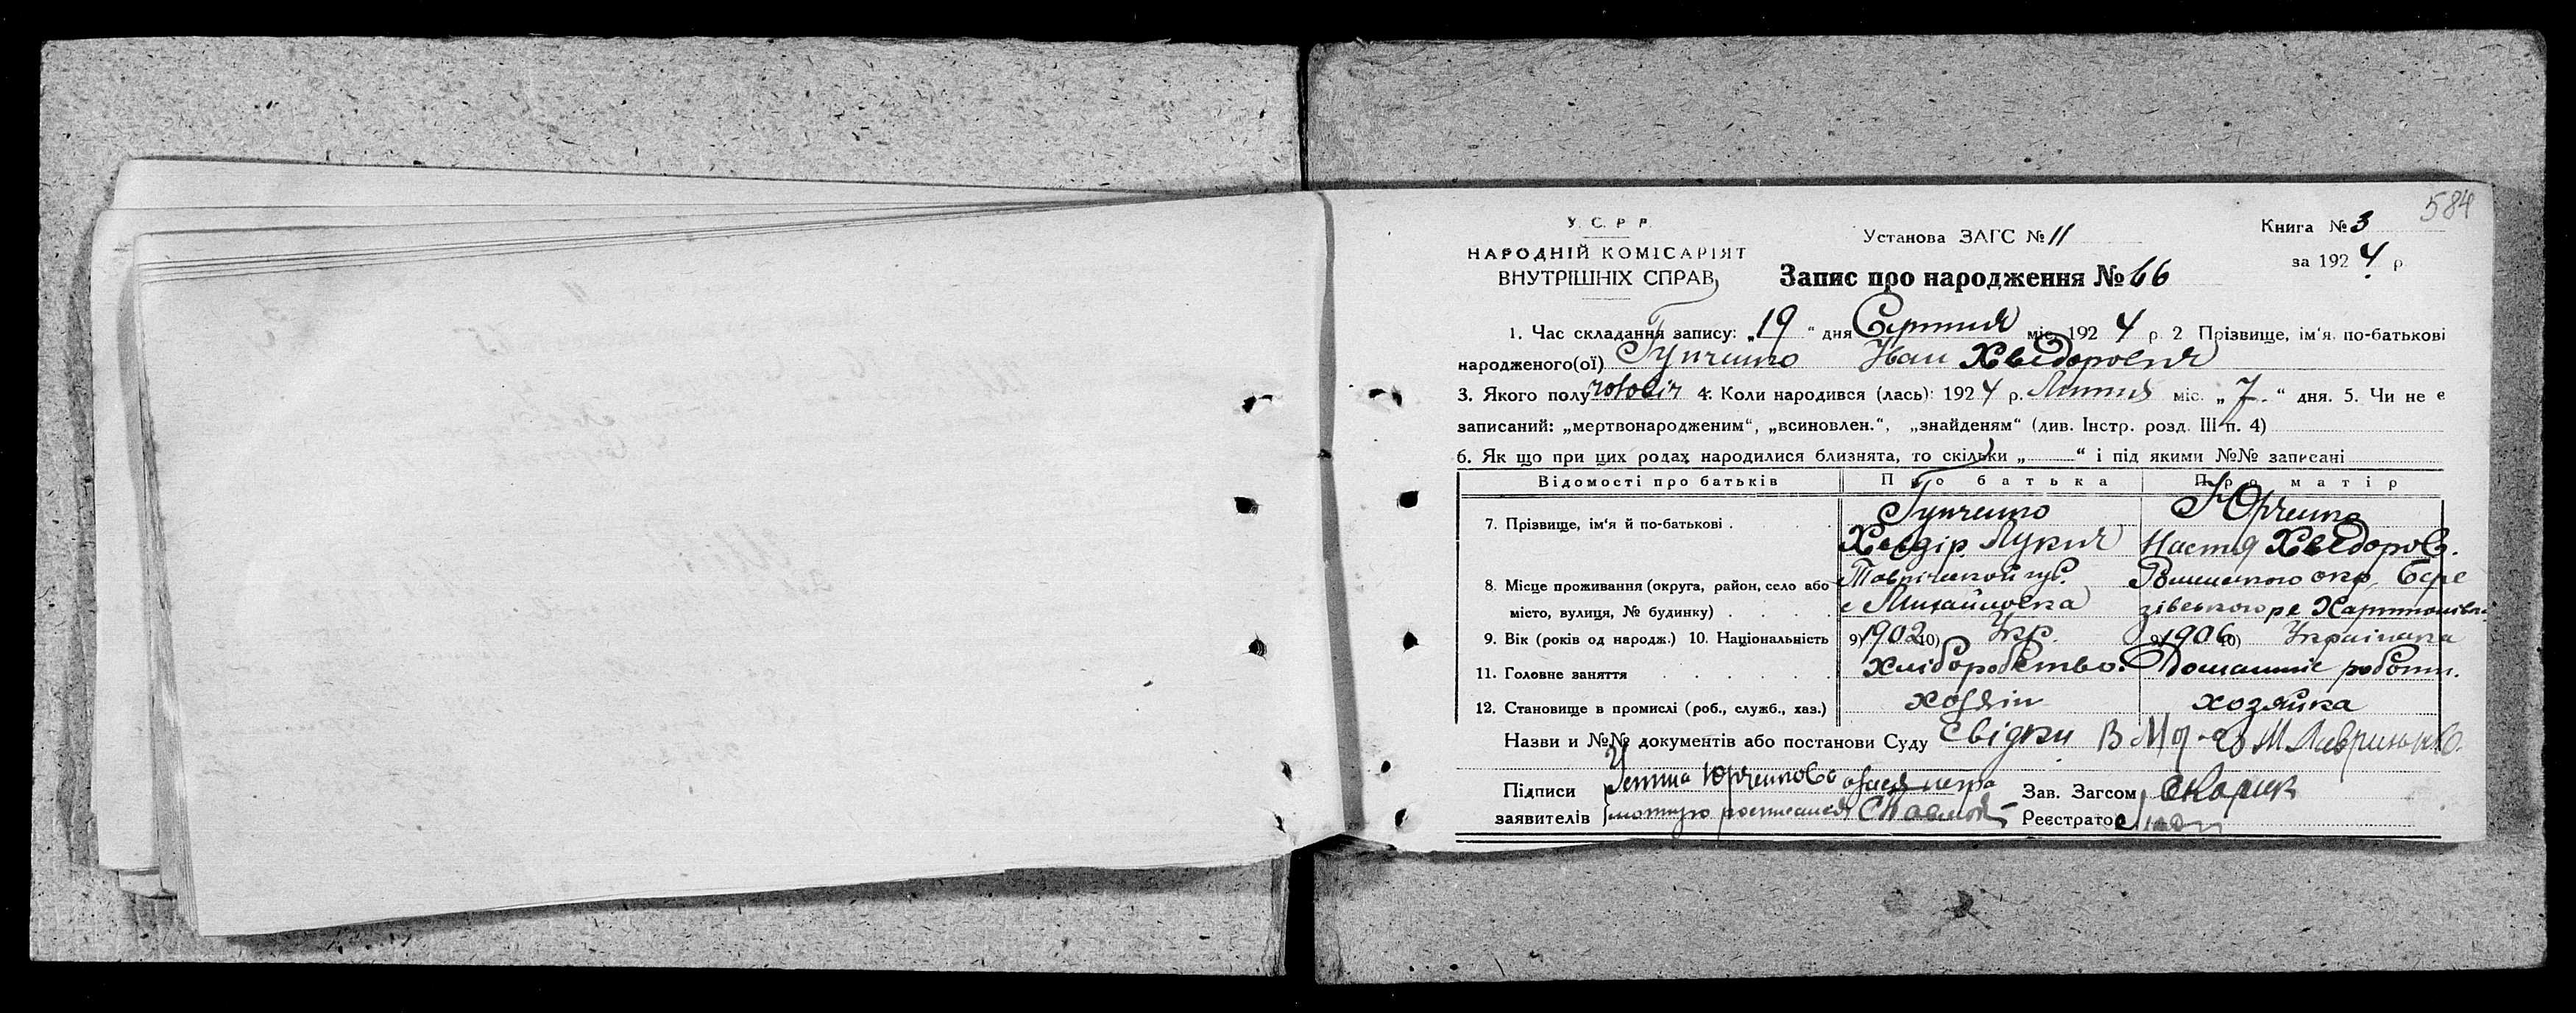 584
У. С. Р. Р.
НАРОДНІЙ КОМІСАРІЯТ
ВНУТРІШНІХ СПРАВ
Установа ЗАГС № 11
Книга № 3
за 1924 р.
Запис про народження № 66
1. Час складання запису: „19“ дня Серпня міс. 1924 р. 2 Прізвище, ім‘я, по-батькові
народженого(ої) Іван Хведорович
3. Якого полу чоловіч 4. Коли народився (лась): 1924 р. Липня міс. „7.“ дня. 5. Чи не є
записаний: „мертвонародженим“, „всиновлен.“, „знайденям“ (див. Інстр. розд. III п. 4)
6. Як що при цих родах народилися близнята, то скільки „ “ і під якими №№ записані
Відомості про батьків Про батька Про матір
7. Прізвище, ім‘я й по-батькові . Юрченко
Хведір Лукич Настя Хведоров.
8. Місце проживання (округа, район, село або Таврічеськой губ. Роменського окр, Бере
місто, вулиця, № будинку) . с Михайловка зівського ра
9. Вік (років од народж.) 10. Національність 9) 1902 10) Укр. 9) 1906 10) Українка
11. Головне заняття Хліборобство. Домашнє роботи.
12. Становище в промислі (роб., служб., хаз.) хозяін хозяйка
Назви и №№ документів або постанови Суду Свідки
Підписи Юрченкова Зав. Загсом
заявителів росписался Реєстратор